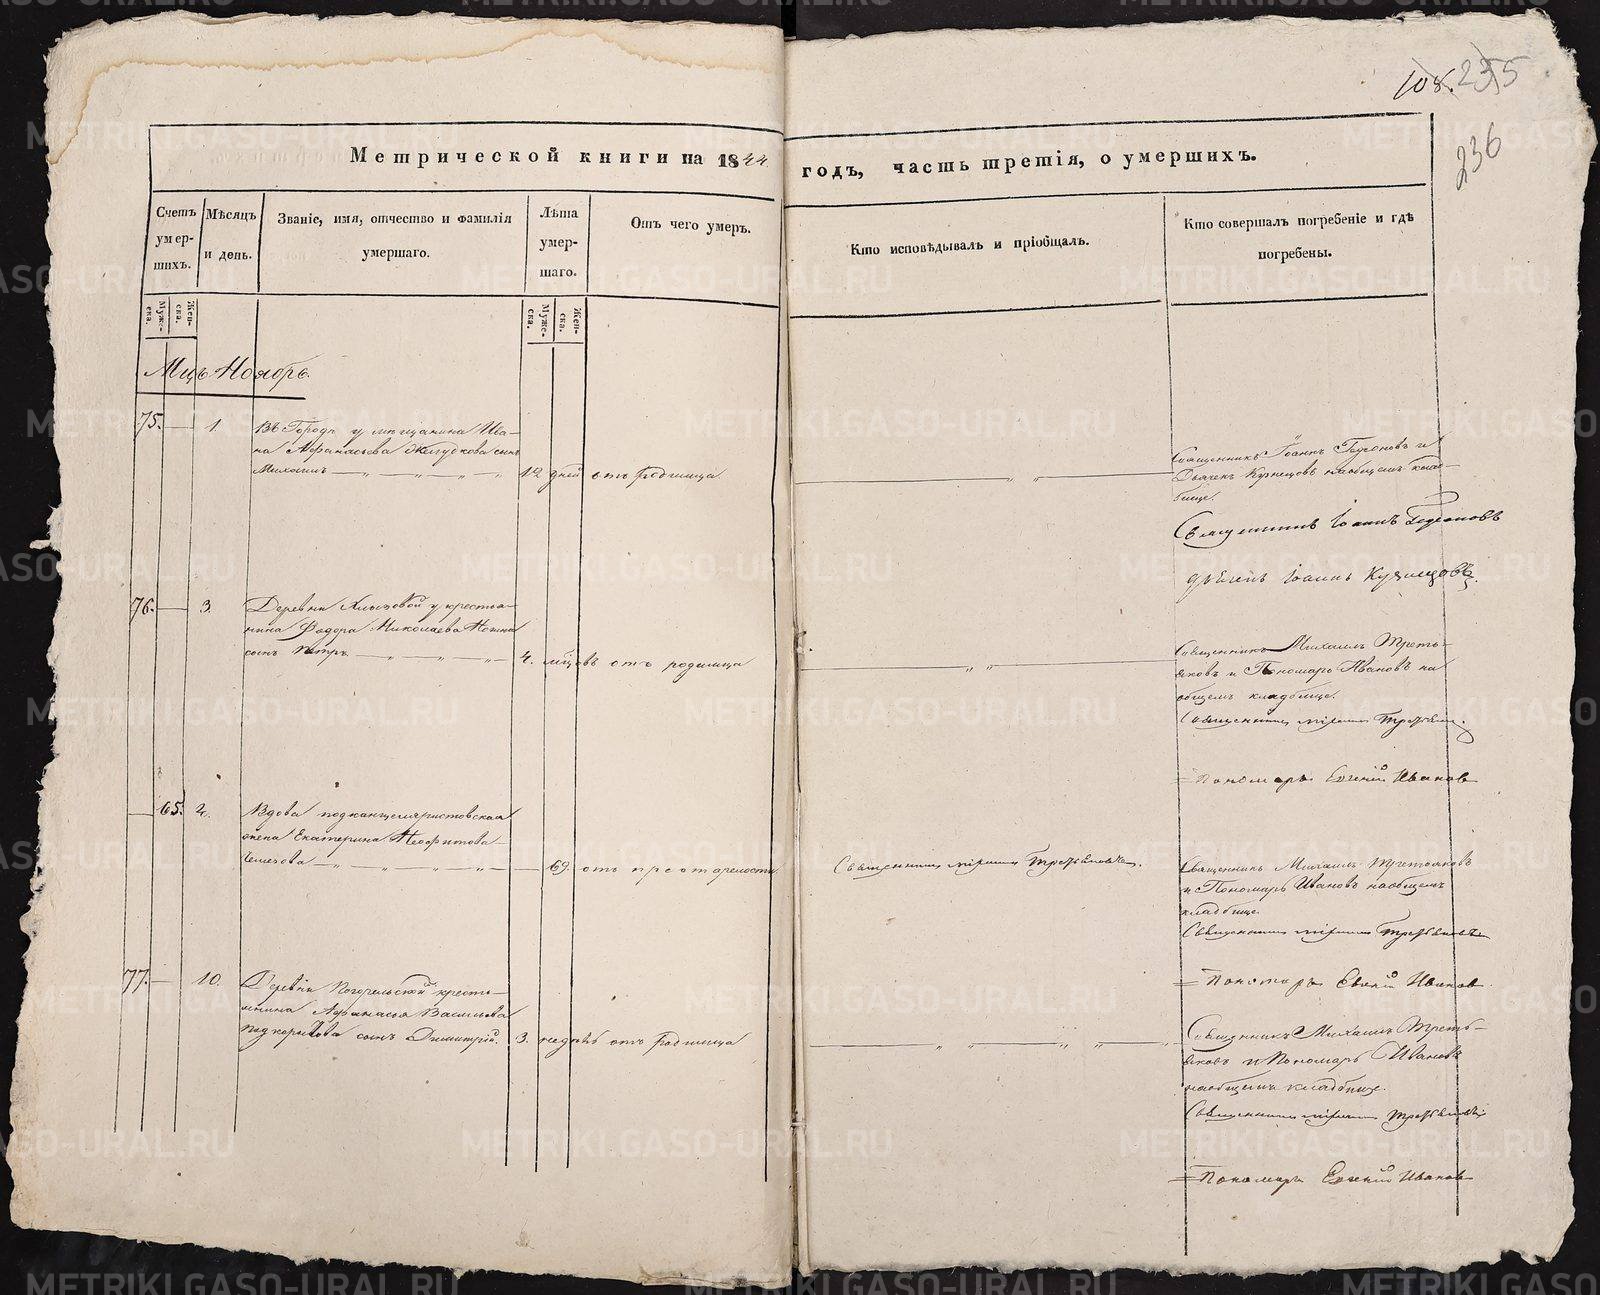 108. 235
236
Метрической книги на 1844 годъ, часть третія, о умершихъ.
Счетъ умершихъ.
Мѣсяцъ и день.
Званіе, имя, отчество и фамилія умершаго.
Лѣта умершаго.
Отъ чего умеръ.
Кто исповѣдывалъ и пріобщалъ.
Кто совершалъ погребеніе и гдѣ погребены.
Мужеска.
Женска.
Мужеска.
Женска.
Мцъ Ноябрь.
75. 1. Въ Городѣ у мещанина Ива-
на Афанасьева сынъ
Михаилъ 12 дней отъ родимца
Священникъ Іоаннъ и
Дьячекъ Кузнецовъ на общемъ клад-
бище.
Священникъ Іоаннъ
Дьячекъ Іоаннъ Кузнецовъ.
76. 3. Деревни у крестья-
нина Федора Николаева
сынъ Петръ 4. мцовъ отъ родимца
Священникъ Михаилъ Треть-
яковъ и Пономарь Ивановъ на
общемъ кладбище.
Священникъ Михаилъ Третьяковъ.
Пономарь Евгеній Ивановъ
65. 2. Вдова подканцеляристовская
жена Екатерина Неофитова
69. отъ престарелости
Священникъ Михаилъ Третьяковъ.
Священникъ Михаилъ Третьяковъ
и Пономарь Ивановъ на общемъ
кладбище.
Священникъ Михаилъ Третьяковъ
Пономарь Евгеній Ивановъ
77. 10. Деревни Погорельской кресть-
янина Афанасья Васильева
Подкорытова сынъ Димитрій. 3. недель отъ родимца
Священникъ Михаилъ Треть-
яковъ и Пономарь Ивановъ
на общемъ кладбище.
Священникъ Михаилъ Третьяковъ
Пономарь Евгеній Ивановъ
METRIKI.GASO-URAL.RU